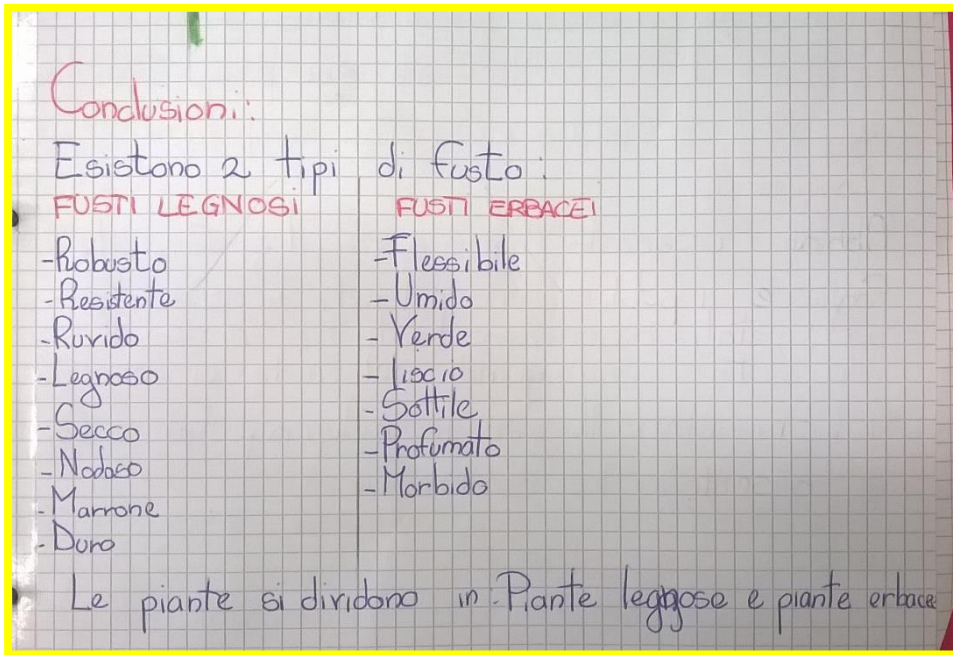 Conclusioni:
Esistono 2 tipi di fusto:
FUSTI LEGNOSI
- Robusto
- Resistente
- Ruvido
- Legnoso
- Secco
- Nodoso
- Marrone
- Duro
FUSTI ERBACEI
- Flessibile
- Umido
- Verde
- liscio
- Sottile
- Profumato
- Morbido
Le piante si dividono in Piante legnose e piante erbace